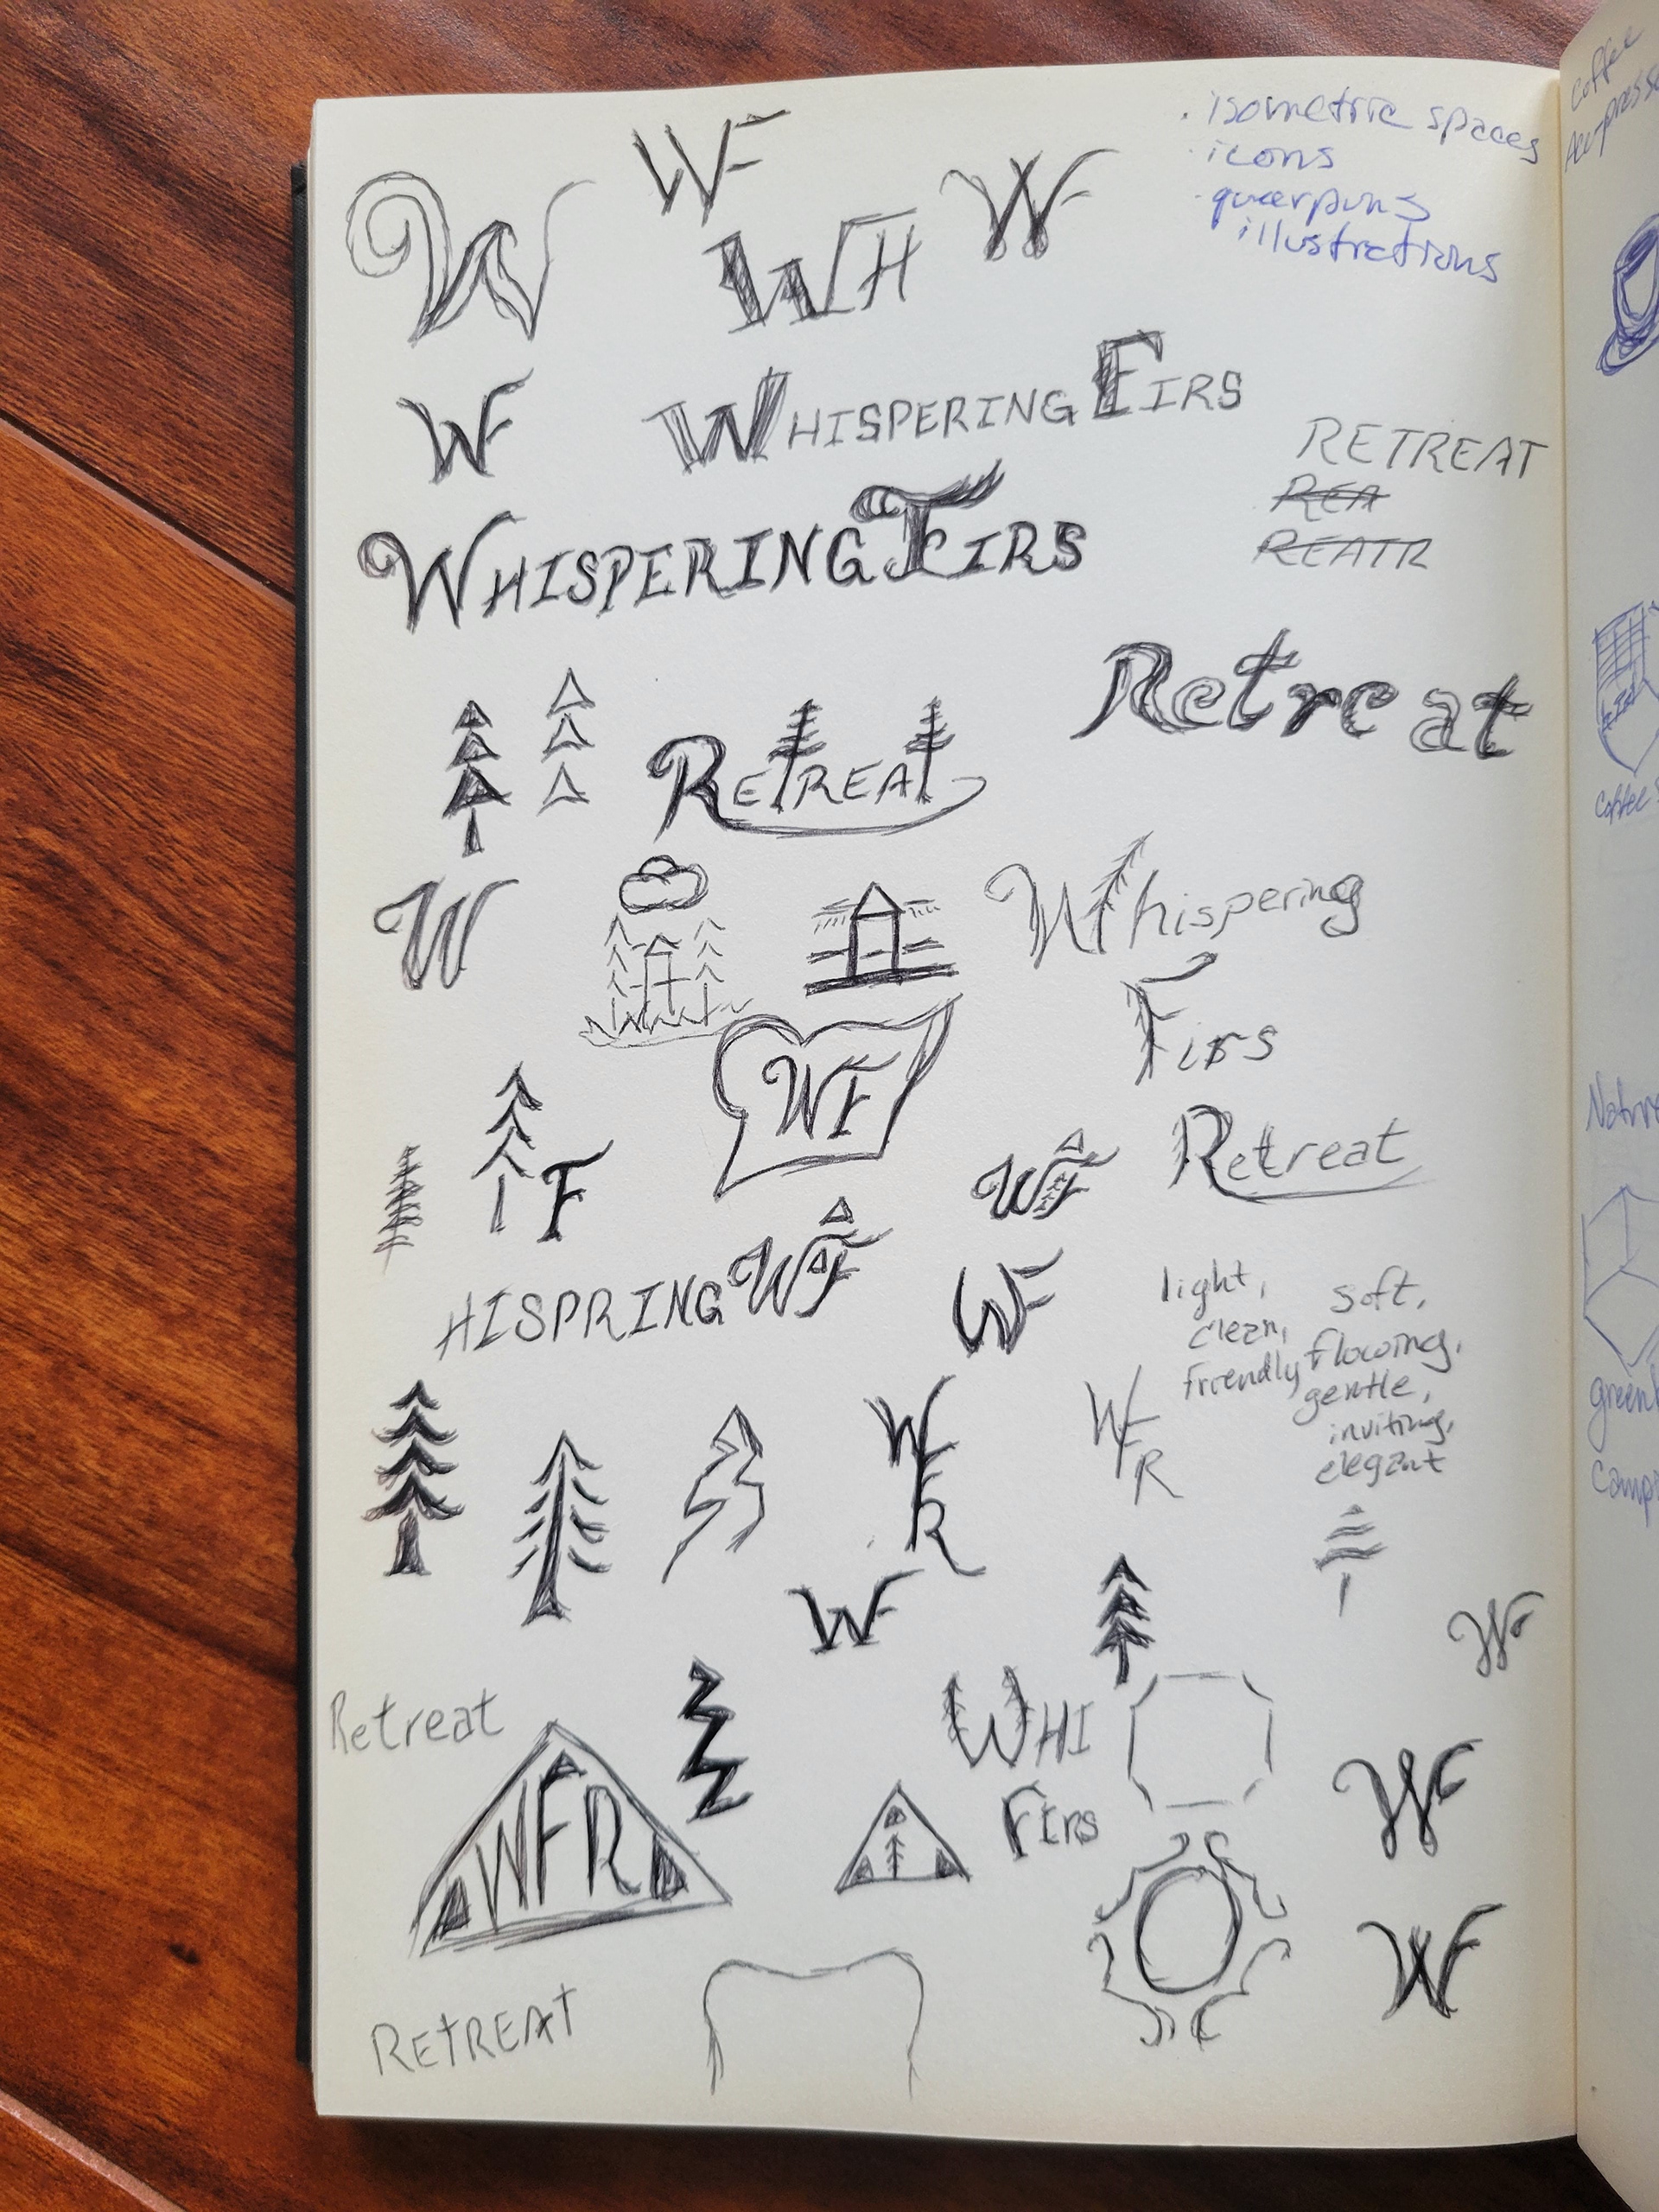 WF
W
WH
WF
· isometric spaces
· icons
· queerpuns
illustrations
WF
WHISPERING FIRS
RETREAT
REA
REATR
WHISPERING FIRS
Retreat
RETREAT
W
Whispering
Firs
WF
Retreat
F
WF
HISPRING
WF
WF
light,
clean,
friendly
soft,
flowing,
gentle,
inviting,
elegant
WFR
WFR
WF
WF
Retreat
WHI
FIrs
WFR
WF
WF
RETREAT
Coffee
Coffee